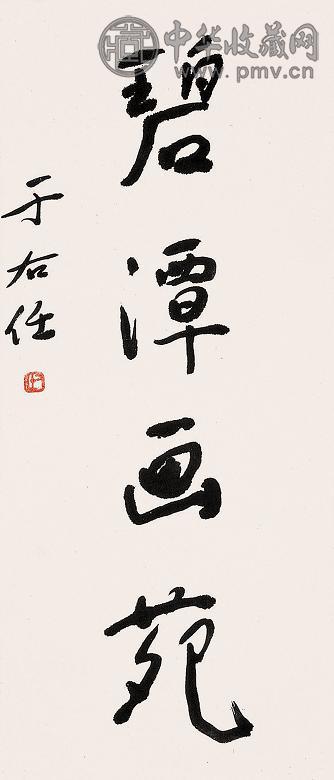 中华收藏网
www.pmv.cn
碧潭画苑
于右任